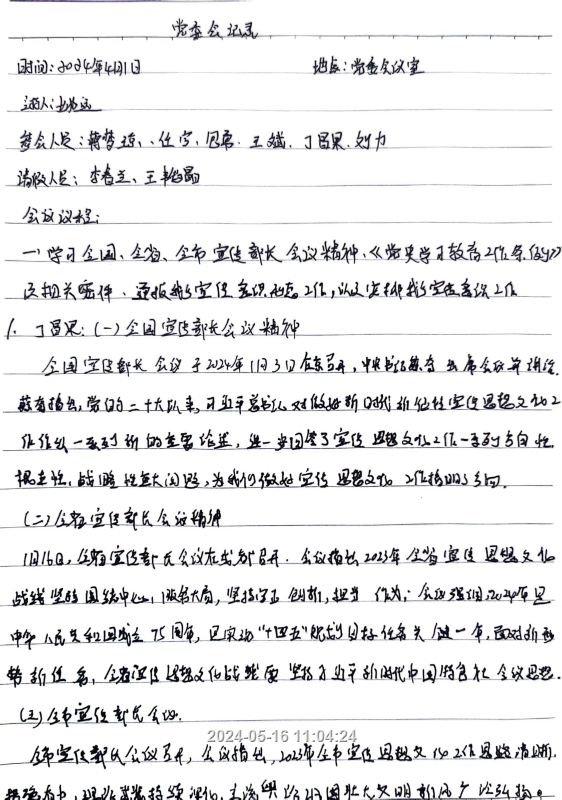 党委会记录
时间：2024年4月1日 地点：党委会议室
主持人：
参会人员：蒋梦琼、任宇、周勇、王斌、丁昌果、刘力
请假人员：李春兰、王
会议议程：
一、学习全国、全省、全市宣传部长会议精神、《党史学习教育工作条例》
及相关要件、通报我乡宣传意识形态工作，认定安排我乡宣传意识工作
1. 丁昌果：（一）全国宣传部长会议精神
全国宣传部长会议于2024年1月3日在京召开，中央书记蔡奇出席会议并讲话。
蔡奇指出，党的二十大以来，习近平总书记对做好新时代新征程宣传思想文化工
作作出一系列新的重要论述，进一步回答了宣传思想文化工作一系列方向性、
根本性、战略性重大问题，为我们做好宣传思想文化工作指明了方向。
（二）全省宣传部长会议精神
1月16日，全省宣传部长会议在成都召开。会议指出2023年全省宣传思想文化
战线坚持围绕中心、服务大局，坚持守正创新，担当作为；会议强调，2024年是
中华人民共和国成立75周年，是实现“十四五”规划目标任务关键一年，面对新形
势新任务，全省宣传思想文化战线要坚持习近平新时代中国特色社会主义思想。
（三）全市宣传部长会议.
全市宣传部长会议召开，会议指出，2023年全市宣传思想文化工作思路清晰、
2024-05-16 11:04:24